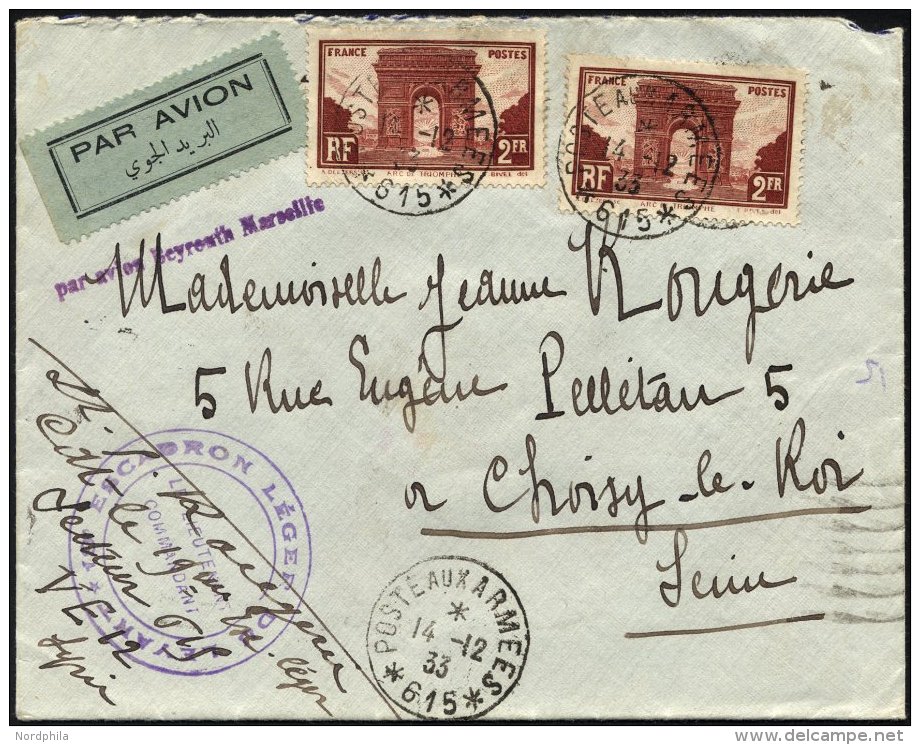 PAR AVION
البريد الجوي
FRANCE POSTES
RF 2FR
ARC DE TRIOMPHE
POSTE AUX ARMEES
*
14 -12
33
* 615 *
FRANCE POSTES
RF 2FR
ARC DE TRIOMPHE
POSTE AUX ARMEES
*
14 -12
33
* 615 *
par avion Beyrouth Marseille
Mademoiselle Jeanne Rougerie
5 Rue Eugène Pelletan 5
a Choisy-le-Roi
Seine
ESCADRON LÉGER DU LEVANT
LE LIEUTENANT
COMMANDANT
Secteur 615
Syrie
POSTE AUX ARMEES
*
14 -12
33
* 615 *
Nordphila
www.delcampe.net